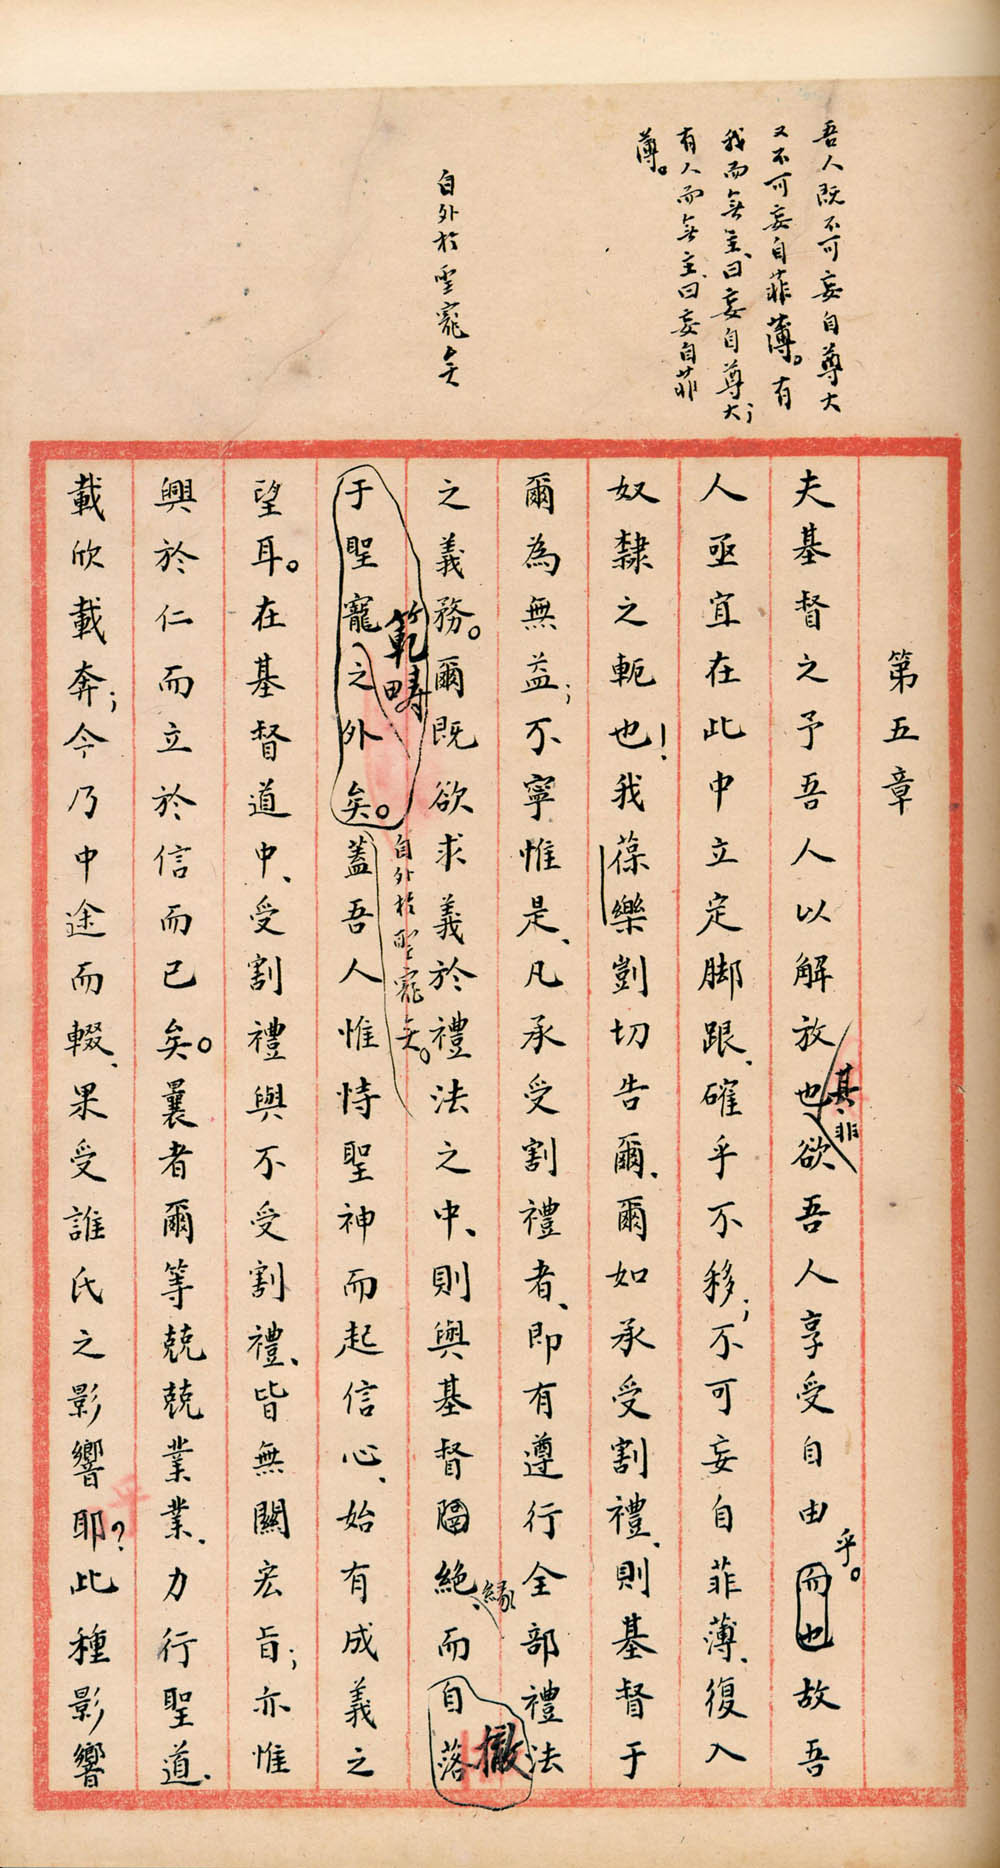 吾人既不可妄自尊大
又不可妄自菲薄。有
我而無主、曰妄自尊大；
有人而無主、曰妄自菲
薄。
自外於聖寵矣
第五章
夫基督之予吾人以解放也欲吾人享受自由而也故吾
其非
乎。
人亟宜在此中立定脚跟、確乎不移；不可妄自菲薄、復入
奴隸之軛也！我葆樂剴切告爾、爾如承受割禮、則基督于
爾為無益；不寧惟是、凡承受割禮者、即有遵行全部禮法
之義務。爾既欲求義於禮法之中、則與基督絕、而自落
緣
撤
範疇
自外於聖寵矣。
于聖寵之外矣。蓋吾人惟恃聖神而起信心、始有成義之
望耳。在基督道中、受割禮與不受割禮、皆無關宏旨；亦惟
興於仁而立於信而已矣。曩者爾等兢兢業業、力行聖道、
載欣載奔；今乃中途而輟、果受誰氏之影響耶？此種影響
乎